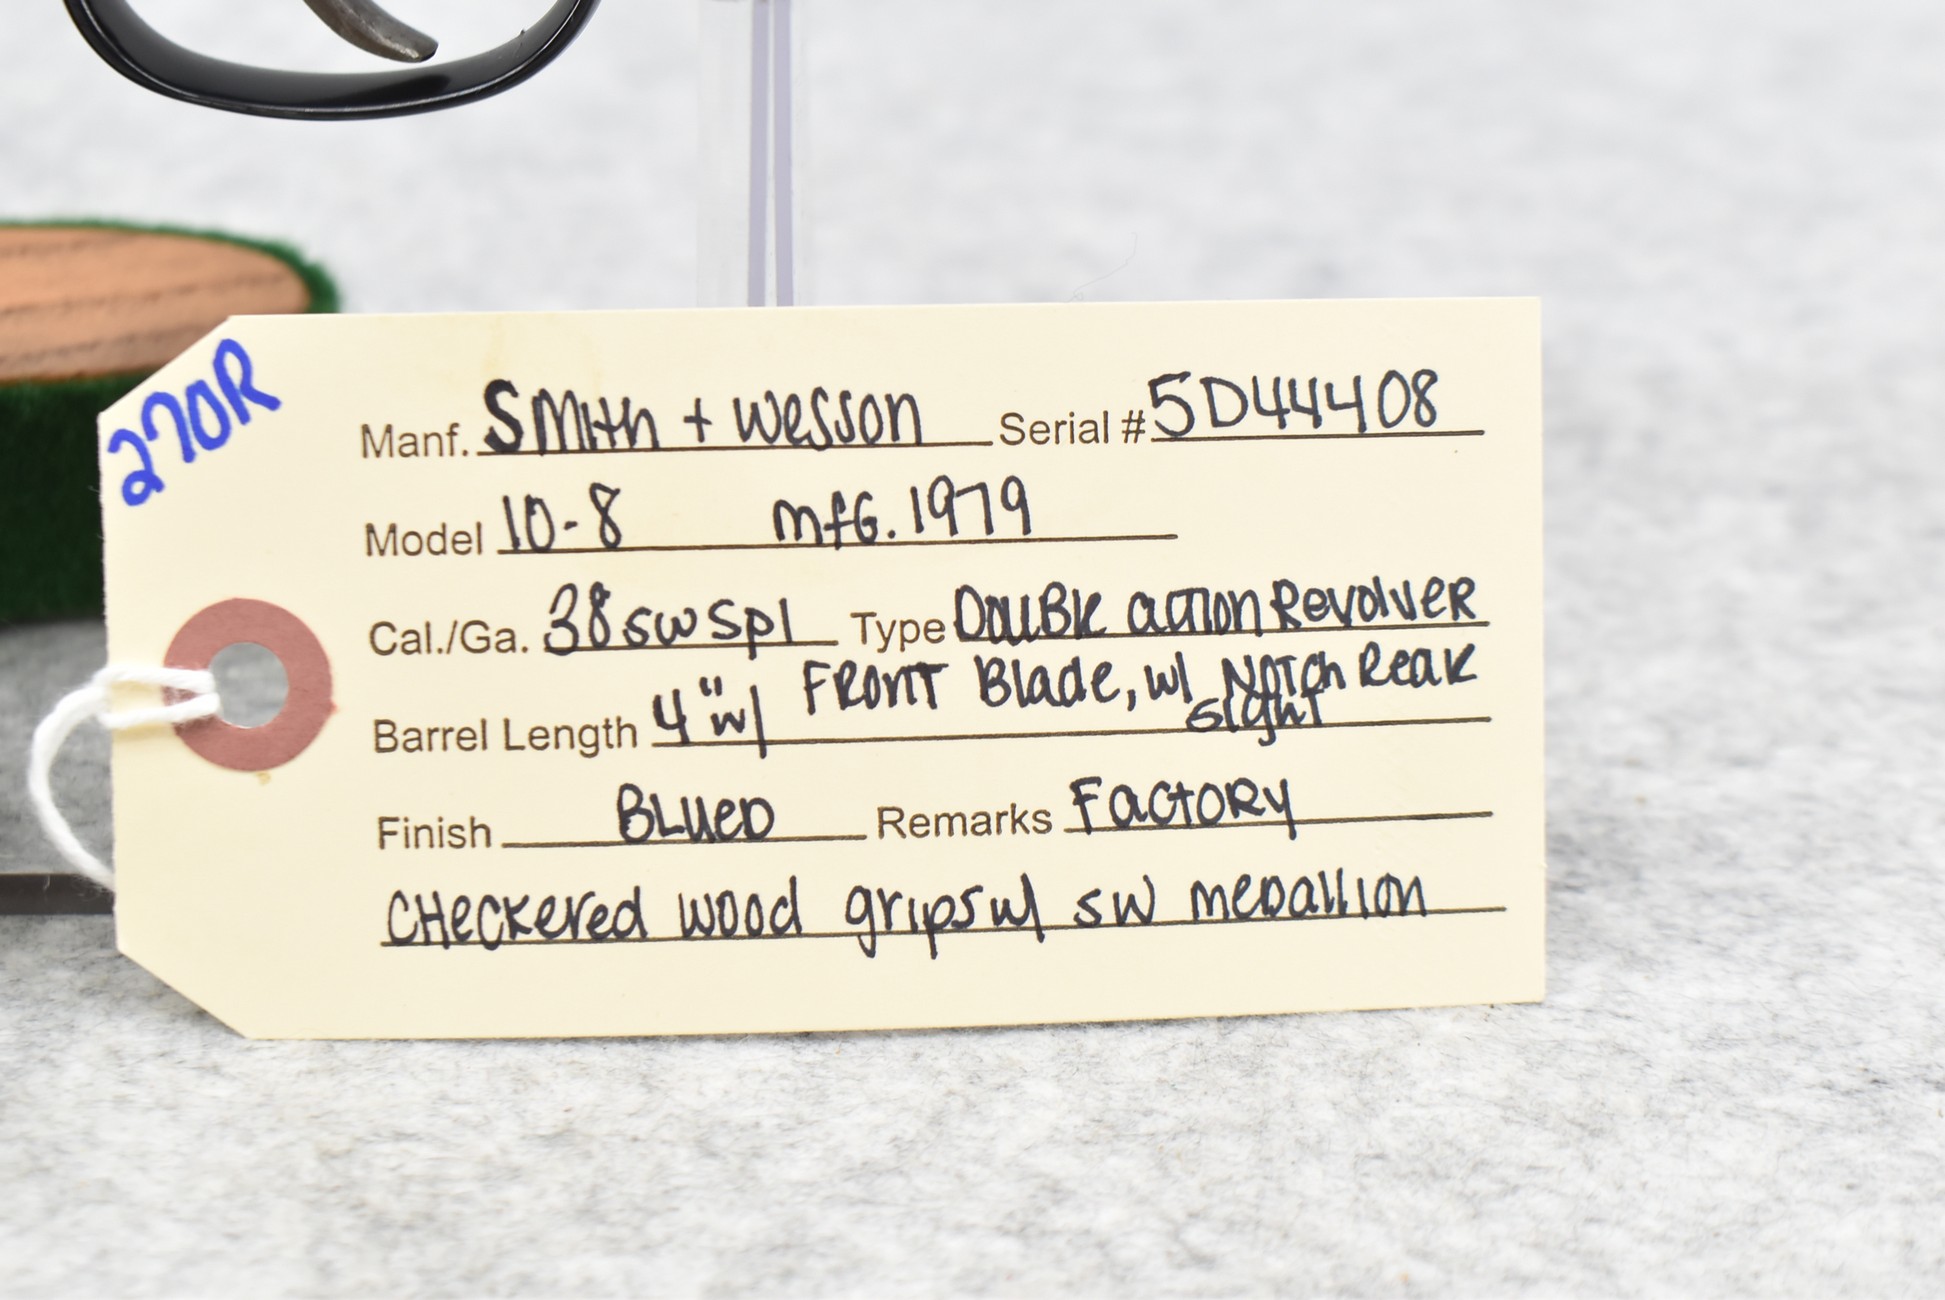 270R
Manf. Smith + Wesson Serial # 5D44408
Model 10-8 mfG. 1979
Cal./Ga. 38 SW Spl Type Double action Revolver
Barrel Length 4" w/ FRONT Blade, w/ Notch Rear
sight
Finish BLUED Remarks Factory
CHeckered wood grips w/ SW medallion